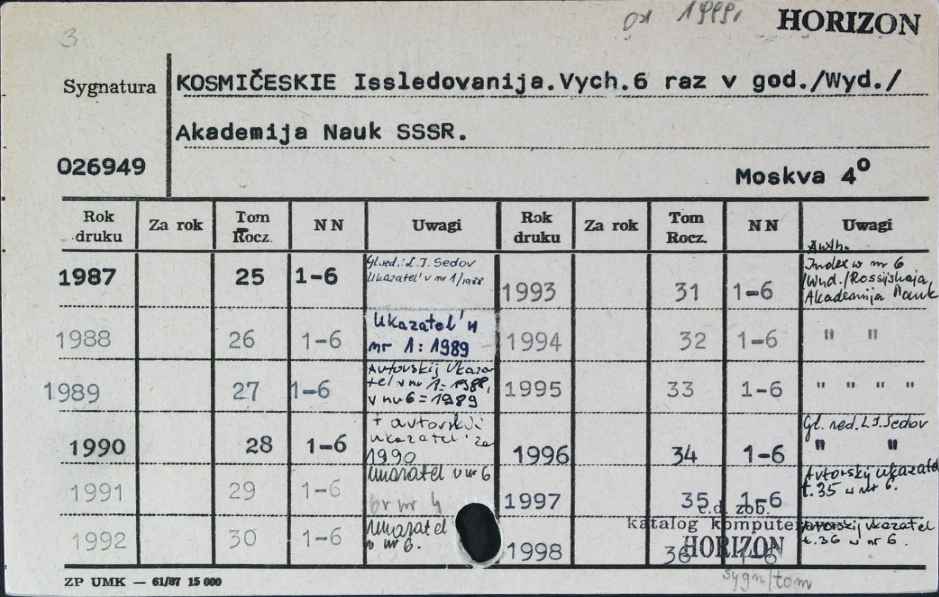 3
od 1999r
HORIZON
Sygnatura
KOSMIČESKIE Issledovanija.Vych.6 raz v god./Wyd./
Akademija Nauk SSSR.
026949
Moskva 4º
Rok druku Za rok Tom Rocz. N N Uwagi Rok druku Za rok Tom Rocz. N N Uwagi
1987 25 1-6 Gl.red.: L.I. Sedov
Ukazatel' v nr 1/1988
1993 31 1-6 Avth.
Index w nr 6
/Wyd./Rossijskaja
Akademija Nauk
1988 26 1-6 Ukazatel' w
nr 1: 1989
1994 32 1-6 " "
1989 27 1-6 Avtorskij Ukaza
tel v nr 1: 1988,
v nr 6 = 1989
1995 33 1-6 " " " "
1990 28 1-6 + avtorskij
ukazatel' za
1990
1996 34 1-6 Gl. red. L.I. Sedov
" "
1991 29 1-6 Ukazatel v nr 6
br nr 4
1997 35 1-6 Avtorskij ukazatel
t.35 w nr 6.
1992 30 1-6 Ukazatel
w nr 6.
1998 36 1-6 Avtorskij ukazatel
t.36 w nr 6.
c.d. zob.
katalog komputerowy
HORIZON
sygn/tom
ZP UMK — 61/87 15 000